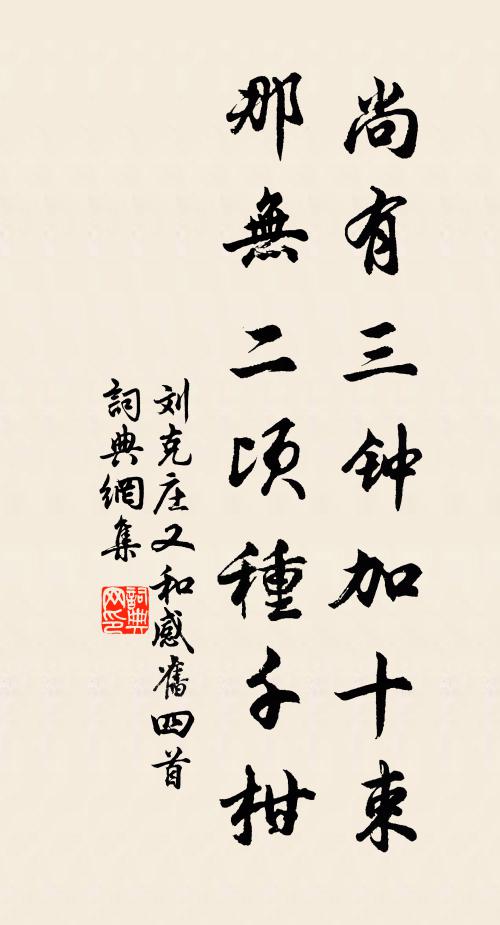 尚有三钟加十束
那無二顷種千柑
刘克庄又和感舊四首
詞典網集
詞典网印